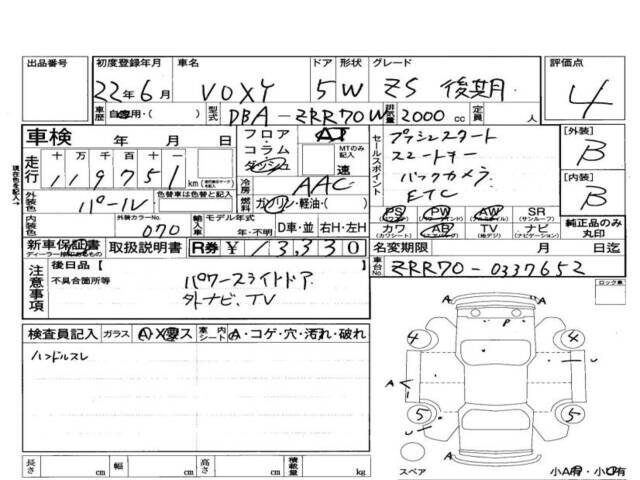 出品番号 初度登録年月 車名 ドア 形状 グレード 評価点
22年6月 VOXY 5 W ZS 後期 4
車歴 自家用・( ) 型式 DBA-ZRR70W 排気量 2000 cc 定員 人
車検 年 月 日 フロア・コラム・ダッシュ AT MTのみ記入 速
セールスポイント プッシュスタート
スマートキー
バックカメラ
ETC
[外装] B
[内装] B
走行 十万 千百十一 119751 km
冷房 AAC
外装色 パール 色替車は色替と記入 燃料 ガソリン・軽油・( )
内装色 外装カラーNo. 070 輸入車 モデル年式 年・不明 D車・並 右H・左H
PS PW AW SR
(サンルーフ)
カワ AB TV ナビ
純正品のみ丸印
新車保証書 取扱説明書 R券 ¥13,330 名変期限 月 日迄
ディーラー印
注意事項 後日品【 】
不具合箇所等 パワースライドドア
外ナビ、TV
車台No. ZRR70-0337652
ロック車
検査員記入 ガラス A・X・要ス 室内シート A・コゲ・穴・汚れ・破れ
ハンドルスレ
A A
P
4 4
A
5 5
A A
スペア 小A有・小U有
長さ cm 幅 cm 高さ cm 積載量 kg